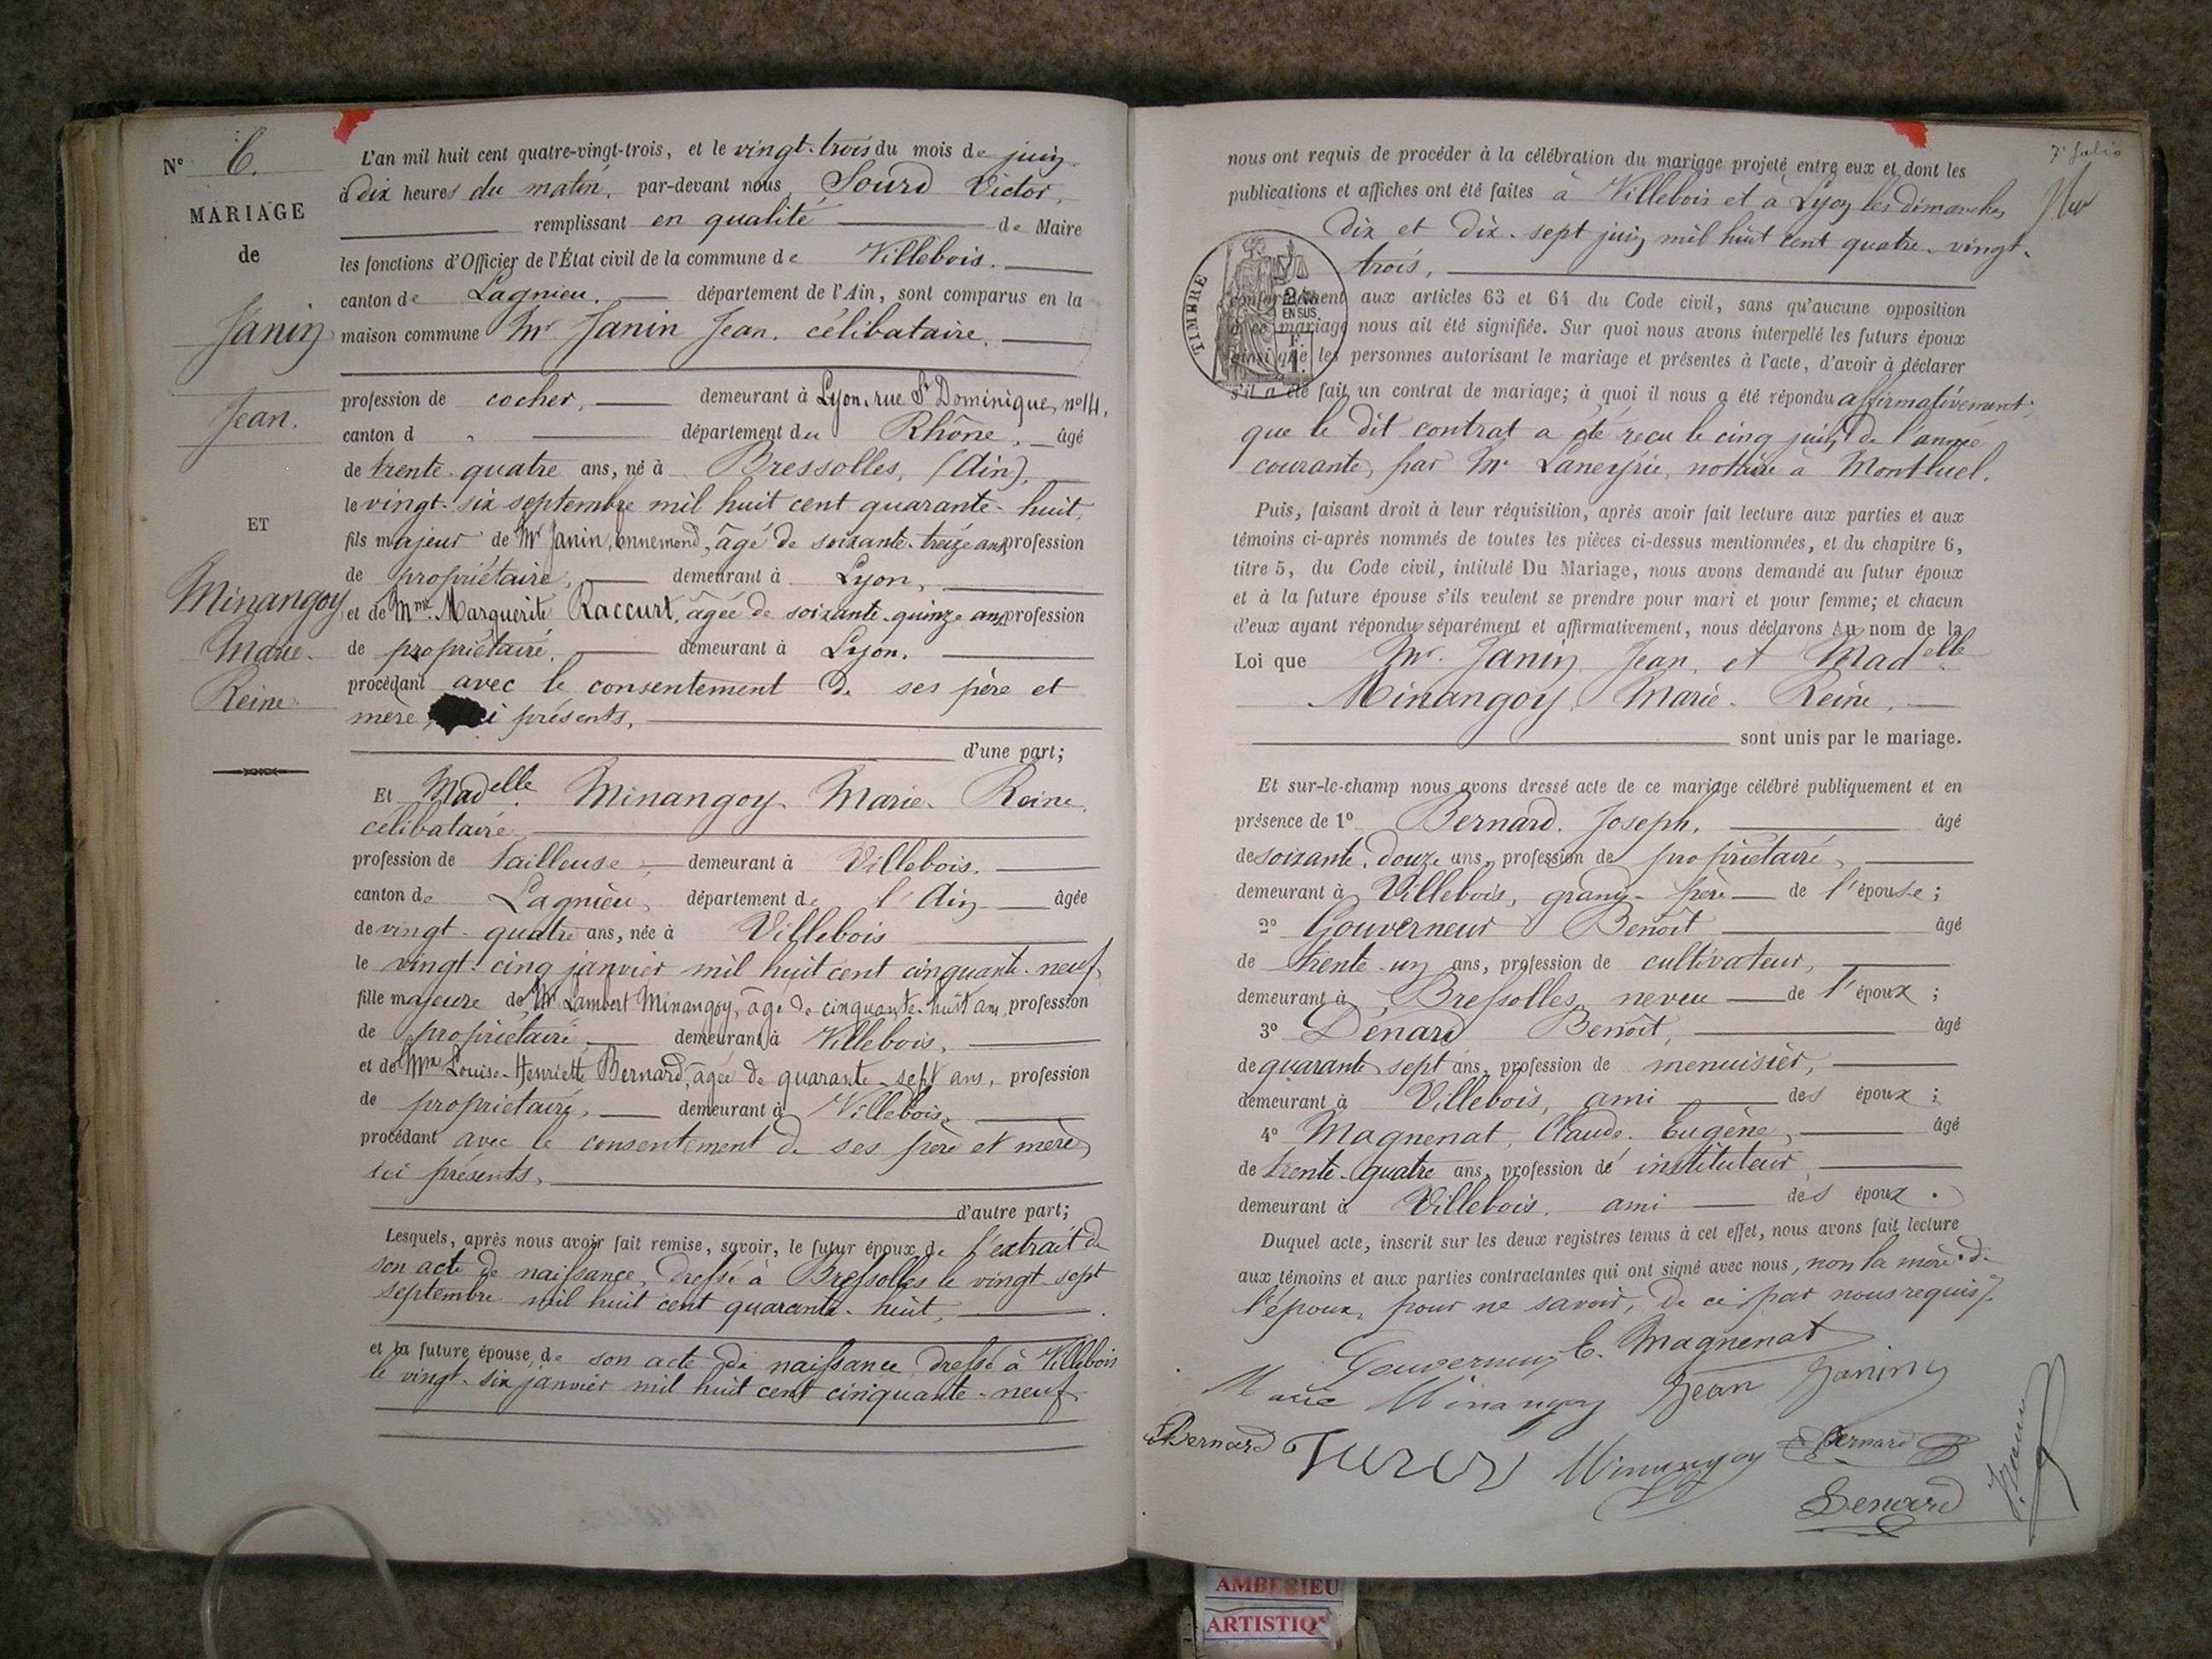 N° 6.
MARIAGE
de
Janin
Jean.
ET
Minangoy
Marie.
Reine.
L'an mil huit cent quatre-vingt-trois, et le vingt-trois du mois de juin
à dix heures du matin, par-devant nous, Sourd Victor,
remplissant en qualité de Maire
les fonctions d'Officier de l'État civil de la commune de Villebois.
canton de Lagnieu, département de l'Ain, sont comparus en la
maison commune Mr Janin Jean, célibataire,
profession de cocher, demeurant à Lyon, rue St Dominique, n° 14,
canton d département du Rhône, âgé
de trente-quatre ans, né à Bressolles, (Ain),
le vingt-six septembre mil huit cent quarante-huit,
fils majeur de Mr Janin, Ennemond, âgé de soixante-treize ans, profession
de propriétaire, demeurant à Lyon,
et de Mme Marguerite Raccurt, âgée de soixante-quinze ans, profession
de propriétaire, demeurant à Lyon,
procédant avec le consentement de ses père et
mère, présents,
d'une part;
Et Madelle Minangoy Marie-Reine,
célibataire,
profession de tailleuse, demeurant à Villebois,
canton de Lagnieu, département de l'Ain âgée
de vingt-quatre ans, née à Villebois
le vingt-cinq janvier mil huit cent cinquante-neuf,
fille majeure de Mr Lambert Minangoy, âgé de cinquante-huit ans, profession
de propriétaire, demeurant à Villebois,
et de Mme Louise-Henriette Bernard, âgée de quarante-sept ans, profession
de propriétaire, demeurant à Villebois,
procédant avec le consentement de ses père et mère,
ici présents,
d'autre part;
Lesquels, après nous avoir fait remise, savoir, le futur époux de l'extrait de
son acte de naissance, dressé à Bressolles le vingt-sept
septembre mil huit cent quarante-huit,
et la future épouse, de son acte de naissance dressé à Villebois
le vingt-six janvier mil huit cent cinquante-neuf
7e folio
nous ont requis de procéder à la célébration du mariage projeté entre eux et dont les
publications et affiches ont été faites à Villebois et à Lyon les dimanches
dix et dix-sept juin mil huit cent quatre-vingt-
trois,
TIMBRE
2/10 EN SUS.
conformément aux articles 63 et 64 du Code civil, sans qu'aucune opposition
à ce mariage nous ait été signifiée. Sur quoi nous avons interpellé les futurs époux
ainsi que les personnes autorisant le mariage et présentes à l'acte, d'avoir à déclarer
s'il a été fait un contrat de mariage; à quoi il nous a été répondu affirmativement;
que le dit contrat a été reçu le cinq juin de l'année
courante, par Me Laneyrie, notaire à Montluel.
Puis, faisant droit à leur réquisition, après avoir fait lecture aux parties et aux
témoins ci-après nommés de toutes les pièces ci-dessus mentionnées, et du chapitre 6,
titre 5, du Code civil, intitulé Du Mariage, nous avons demandé au futur époux
et à la future épouse s'ils veulent se prendre pour mari et pour femme; et chacun
d'eux ayant répondu séparément et affirmativement, nous déclarons Au nom de la
Loi que Mr. Janin Jean, et Madelle
Minangoy, Marie-Reine,
sont unis par le mariage.
Et sur-le-champ nous avons dressé acte de ce mariage célébré publiquement et en
présence de 1° Bernard, Joseph, âgé
de soixante-douze ans, profession de propriétaire,
demeurant à Villebois, grand-père de l'épouse;
2° Gouverneur Benoît âgé
de trente-un ans, profession de cultivateur,
demeurant à Bressolles, neveu de l'époux;
3° Dénard Benoît, âgé
de quarante-sept ans, profession de menuisier,
demeurant à Villebois, ami des époux;
4° Magnenat, Claude-Eugène, âgé
de trente-quatre ans, profession de instituteur
demeurant à Villebois, ami des époux.
Duquel acte, inscrit sur les deux registres tenus à cet effet, nous avons fait lecture
aux témoins et aux parties contractantes qui ont signé avec nous, non la mère de
l'époux, pour ne savoir, de ce par nous requis.
Gouverneur E. Magnenat
Marie Minangoy Jean Janin
Bernard Minangoy Bernard
Denard
AMBERIEU
ARTISTIQ